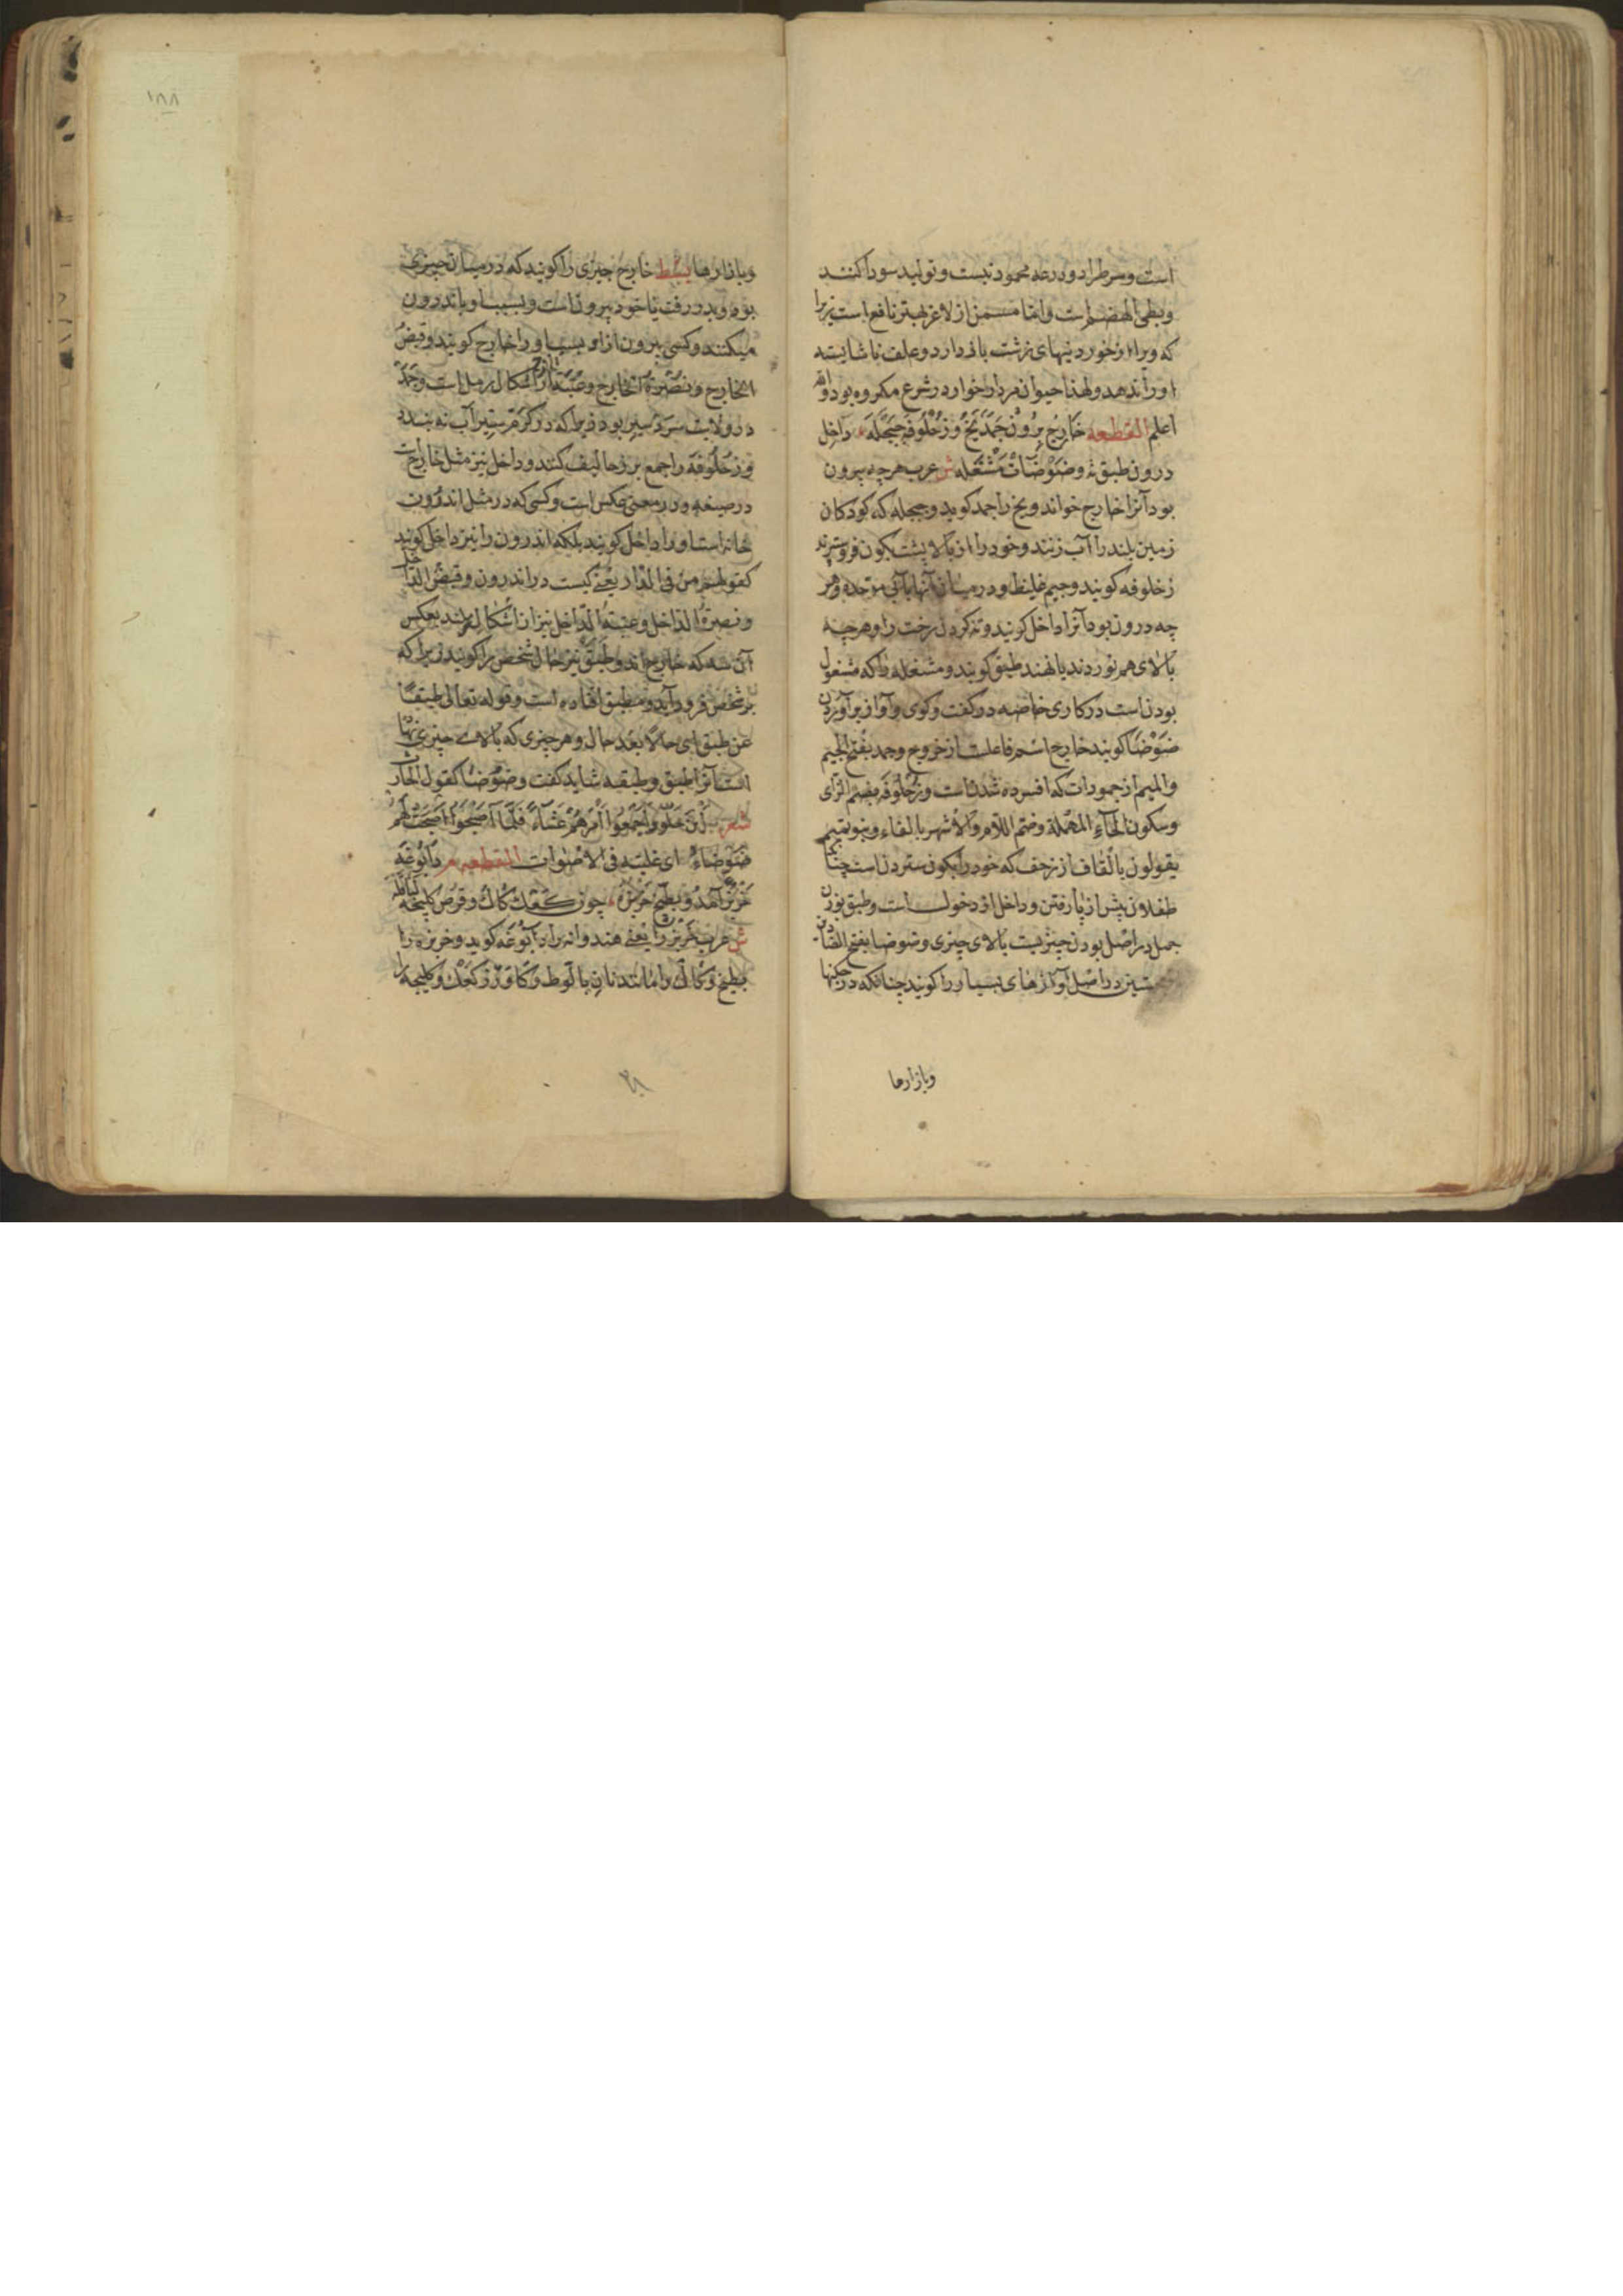 است وسرطرا دو درعه محمود نیست وتولید سودا کنند
وبطی الهضم است واما مسمن از لاغر بهتر نافع است زیرا
که ویرا از خوردنیهای زشت باز دارد وعلف ناشایسته
اورا ندهد ولهذا حیوان مردار خوار در شرع مکروه بود والله
اعلم القطعه خارج برون جمد یخ و زحلوفه جیجله داخل
درون طبق ته وضوضات مشغله ش عرب هرچه بیرون
بود آنرا خارج خواند ویخ را جمد کوید وجیجله که کودکان
زمین بلند را آب زنند وخود را از بالا پشت کون فرو سرند
زحلوفه کویند وجیم غلیظ ودر میان آنها یائی موحده وهر
چه درون بود آنرا داخل کویند وته کردن رخت را وهرچه
بالای هم نوردند یا نهند طبق کویند ومشغله را که مشغول
بودن است در کاری خاصه در کفت وکوی وآواز برآوردن
ضوضا کویند خارج اسم فاعلست از خروج وجمد بفتح الجیم
والمیم از جمودات که افسرده شدنست وزحلوفه بضم الزای
وسکون الحاء المهملة وضم اللام والاشهر بالفاء وبنو تمیم
یقولون بالقاف از زحف که خود را بکون سردن است چنانکه
طفلان پیش از پا رفتن وداخل از دخول است وطبق بوزن
جمل در اصل بودن چیزیست بالای چیزی وضوضا بفتح الضادین
در اصل آوازهای بسیار را کویند چنانکه در جنکها
وبازارها
۱۸۸
وبازارها بسط خارج چیزی را کویند که در میان چیزی
بود وبدر رفت یا خود بیرون است وبسبب او یا اندرون
میکنند وکسی بیرون از او بسبب اورا خارج کویند وقبض
الخارج ونصرة الخارج وعتبة الخارج از اشکال رمل است وجمد
در ولایت سردسیر بود زیرا که در کرم سیر آب نه بندد
وزحلوفه را جمع بر زحالیف کنند وداخل نیز مثل خارج است
در صیغه ودر معنی عکس است وکسی که در مثل اندرون
خانه است اورا داخل کویند بلکه اندرون را نیز داخل کویند
کقولهم من فی الدار یعنی کیست در اندرون وقبض الداخل
ونصرة الداخل وعتبة الداخل نیز از اشکال رملند بعکس
آن سه که خارج اند وطبق نیز حال شخص را کویند زیرا که
بر شخص فرود آید ومطبق افتاده است وقوله تعالی طبقا
عن طبق ای حالا بعد حال وهر چیزی که بالای چیزی نهاده
است آنرا طبق وطبقه شاید کفت وضوضا کقول الحارث
شعر اجمعوا امرهم عشاء فلما اصبحوا اصبحت لهم
ضوضاء ای غلبة فی الاصوات القطعه م دابوغه
خربز آمد وبطیخ خربزه چون کعک کاک وقرص کلیچه
ش عرب خربز را یعنی هندوانه را دابوغه کوید وخربزه را
بطیخ وکاک را مانند نان بالوط وکاورز کعک وکلیچه را